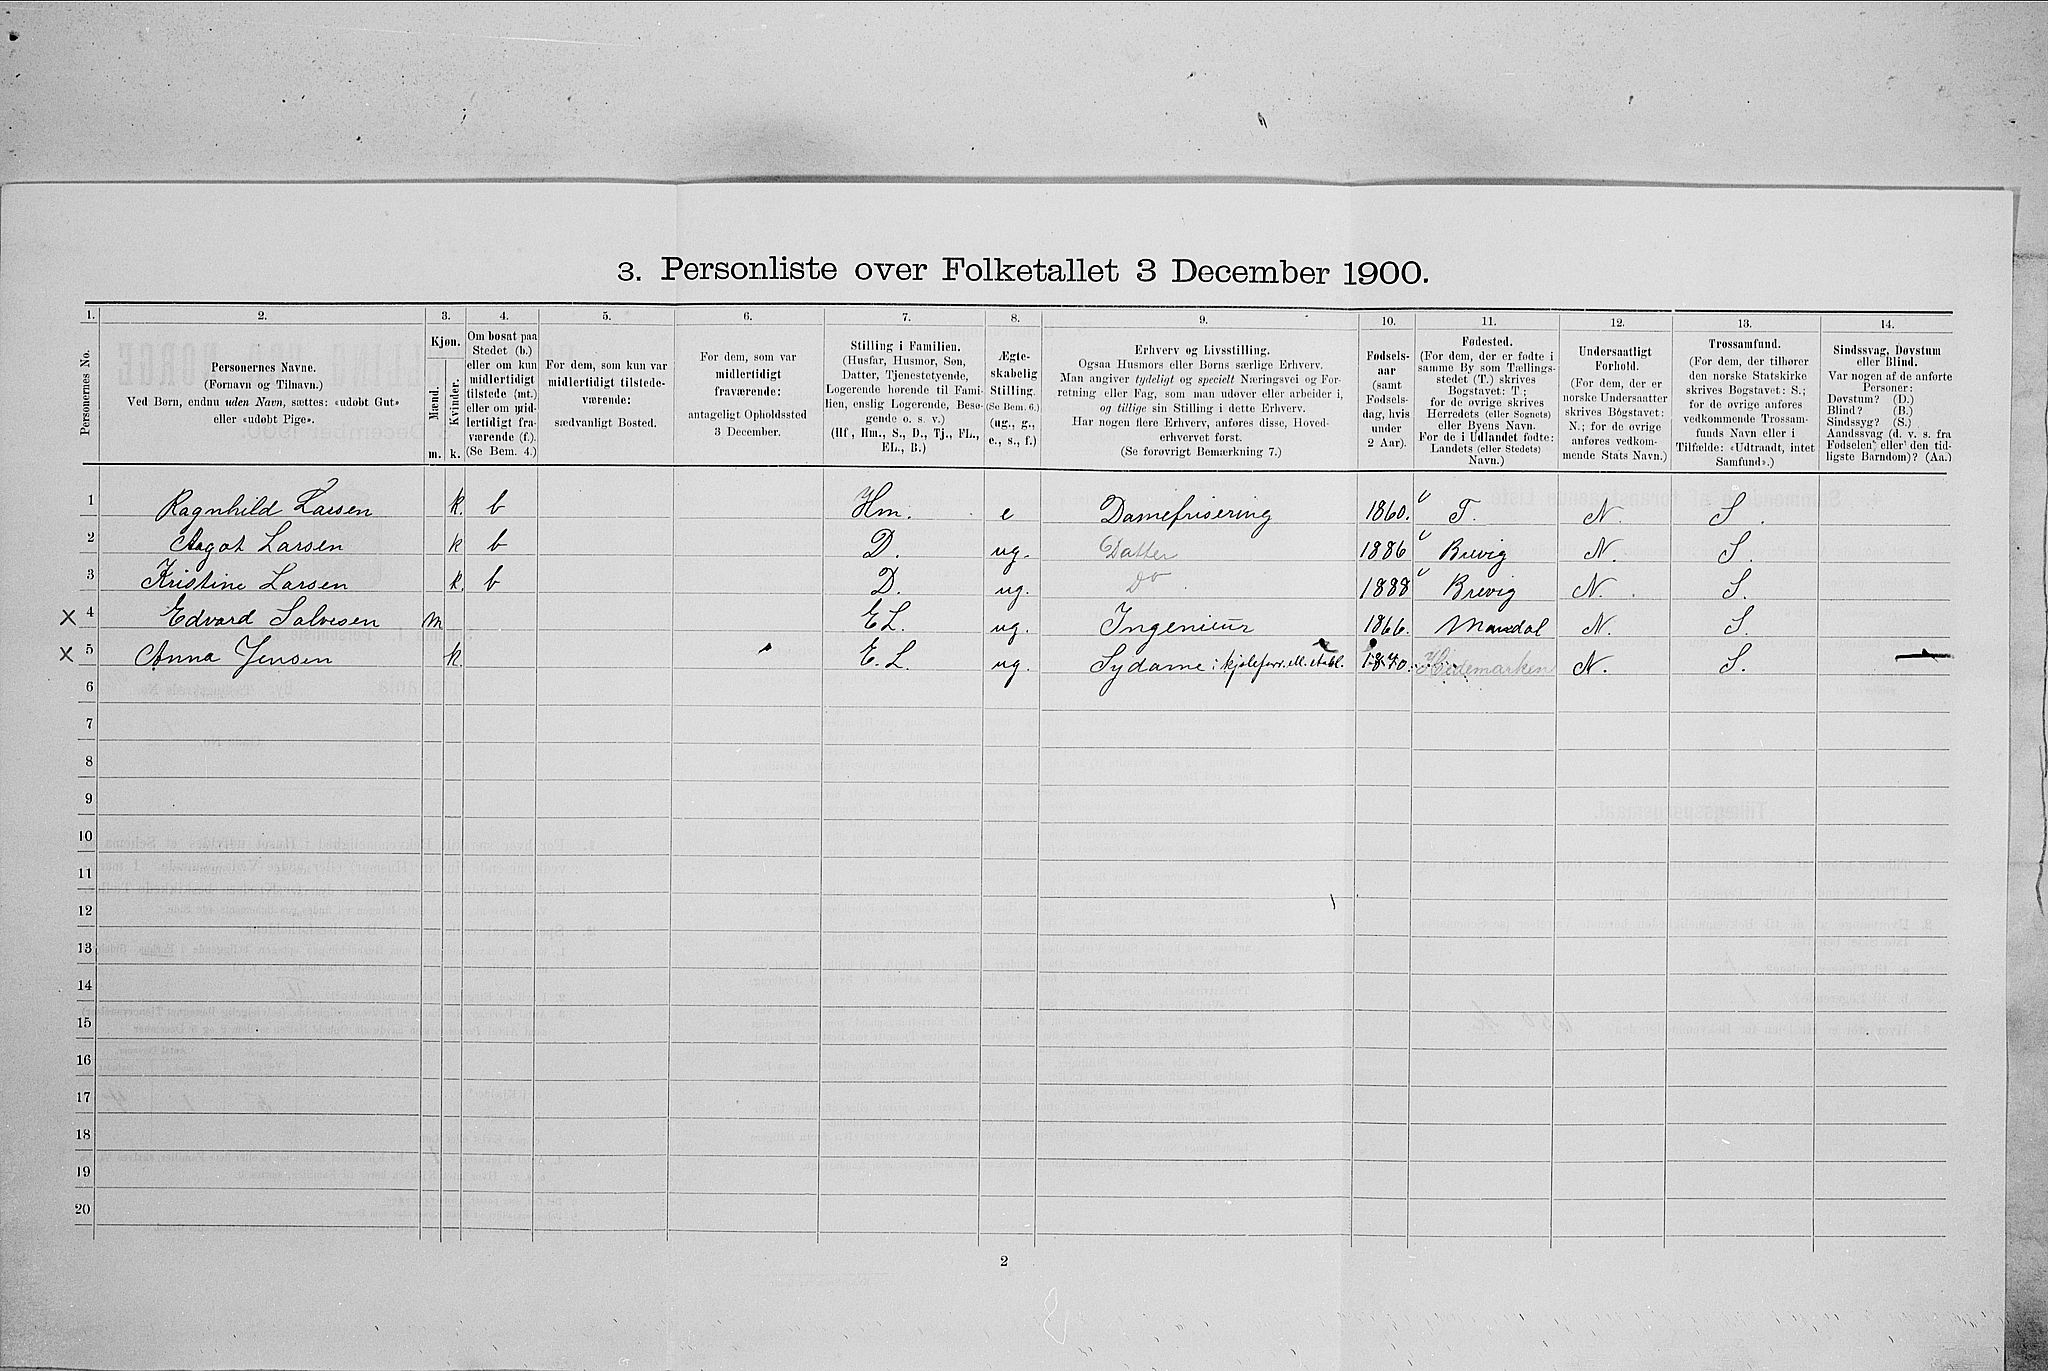 3. Personliste over Folketallet 3 December 1900.
1. 2. 3. 4. 5. 6. 7. 8. 9. 10. 11. 12. 13. 14.
Personernes No.
Personernes Navne.
(Fornavn og Tilnavn.)
Ved Børn, endnu uden Navn, sættes: «udøbt Gut»
eller «udøbt Pige».
Kjøn.
Mænd.
Kvinder.
m. k.
Om bosat paa
Stedet (b.)
eller om kun
midlertidigt
tilstede (mt.)
eller om mid-
lertidigt fra-
værende (f.).
(Se Bem. 4.)
For dem, som kun var
midlertidigt tilstede-
værende:
sædvanligt Bosted.
For dem, som var
midlertidigt
fraværende:
antageligt Opholdssted
3 December.
Stilling i Familien.
(Husfar, Husmor, Søn,
Datter, Tjenestetyende,
Logerende hørende til Fami-
lien, enslig Logerende, Besø-
gende o. s. v.)
(Hf., Hm., S., D., Tj., FL.,
EL., B.)
Ægte-
skabelig
Stilling.
(Se Bem. 6.)
(ug., g.,
e., s., f.)
Erhverv og Livsstilling.
Ogsaa Husmors eller Børns særlige Erhverv.
Man angiver tydeligt og specielt Næringsvei og For-
retning eller Fag, som man udøver eller arbeider i,
og tillige sin Stilling i dette Erhverv.
Har nogen flere Erhverv, anføres disse, Hoved-
erhvervet først.
(Se forøvrigt Bemærkning 7.)
Fødsels-
aar
(samt
Fødsels-
dag, hvis
under
2 Aar).
Fødested.
(For dem, der er fødte i
samme By som Tællings-
stedet (T.) skrives
Bogstavet: T.;
for de øvrige skrives
Herredets (eller Sognets)
eller Byens Navn.
For de i Udlandet fødte:
Landets (eller Stedets)
Navn.)
Undersaatligt
Forhold.
(For dem, der er
norske Undersaatter
skrives Bogstavet:
N.; for de øvrige
anføres vedkom-
mende Stats Navn.)
Trossamfund.
(For dem, der tilhører
den norske Statskirke
skrives Bogstavet: S.;
for de øvrige anføres
vedkommende Trossam-
funds Navn eller i
Tilfælde: «Udtraadt, intet
Samfund».)
Sindssvag, Døvstum
eller Blind.
Var nogen af de anførte
Personer:
Døvstum? (D.)
Blind? (B.)
Sindssyg? (S.)
Aandssvag (d. v. s. fra
Fødselen eller den tid-
ligste Barndom)? (Aa.)
1 Ragnhild Larsen k. b Hm. e Damefrisering 1860. T. N. S.
2 Aagot Larsen k b D. ug. Datter 1886 Brevig N. S.
3 Kristine Larsen k. b D. ug. Do 1888 Brevig N. S.
x 4 Edvard Salvesen m EL. ug. Ingeniør 1866. Mandal N. S.
x 5 Anna Jensen k. E. L. ug. Sydame i kjoleforr. ell. etabl. 1870. Hedemarken N. S. —
6
7
8
9
10
11
12
13
14
15
16
17
18
19
20
2